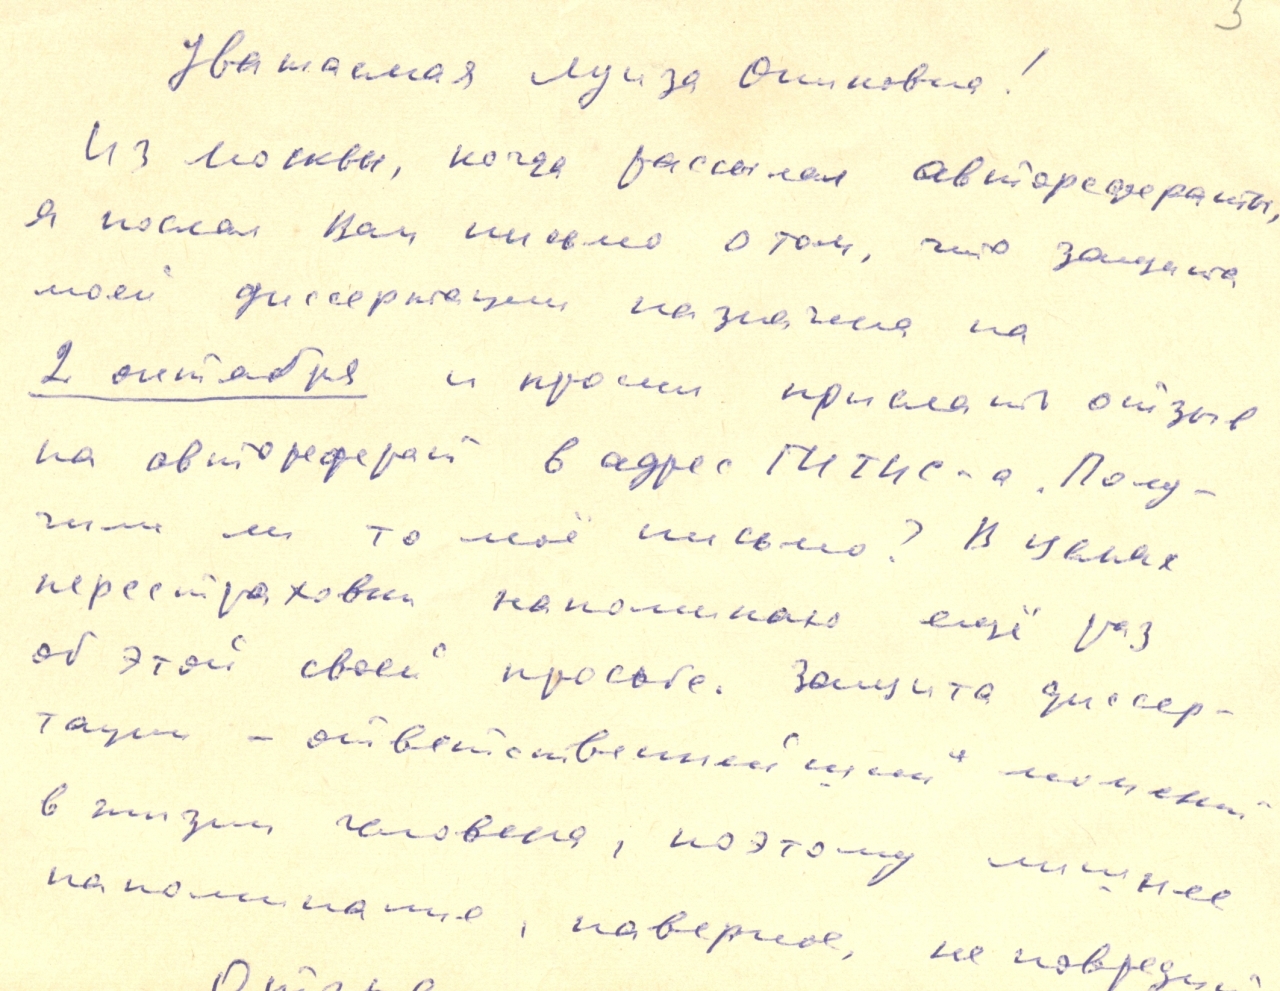 3
Уважаемая Луиза Осиповна!
Из Москвы, когда рассылал авторефераты,
я послал Вам письмо о том, что защита
моей диссертации назначена на
2 октября и просил прислать отзыв
на автореферат в адрес ГИТИС-а. Полу-
чили ли то моё письмо? В целях
перестраховки напоминаю ещё раз
об этой своей просьбе. Защита диссер-
тации - ответственнейший момент
в жизни человека, поэтому лишнее
напоминание, наверное, не повредит